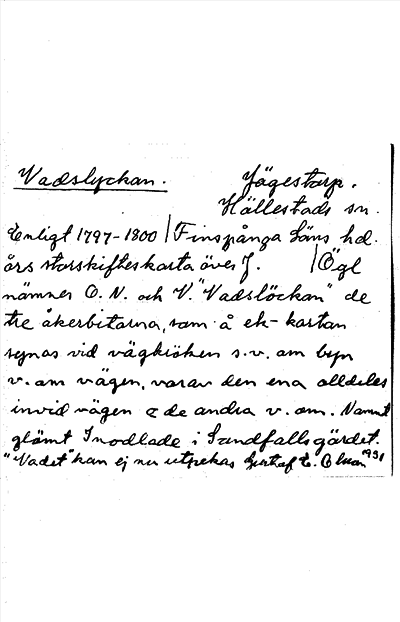 Vadslyckan. Jägestorp.
Hällestads sn.
Enligt 1797-1800 Finspånga läns hd.
års storskifteskarta över J. Ögl
nämnes Ö. N. och V. "Vadslöckan" de
tre åkerbitarna, som å ek-kartan
synas vid vägkröken s.v. om byn
v. om vägen, varav den ena alldeles
invid vägen & de andra v. om. Namnet
glömt Inodlade i Sandfallsgärdet.
"Vadet" kan ej nu utpekas Gustaf E. 1931